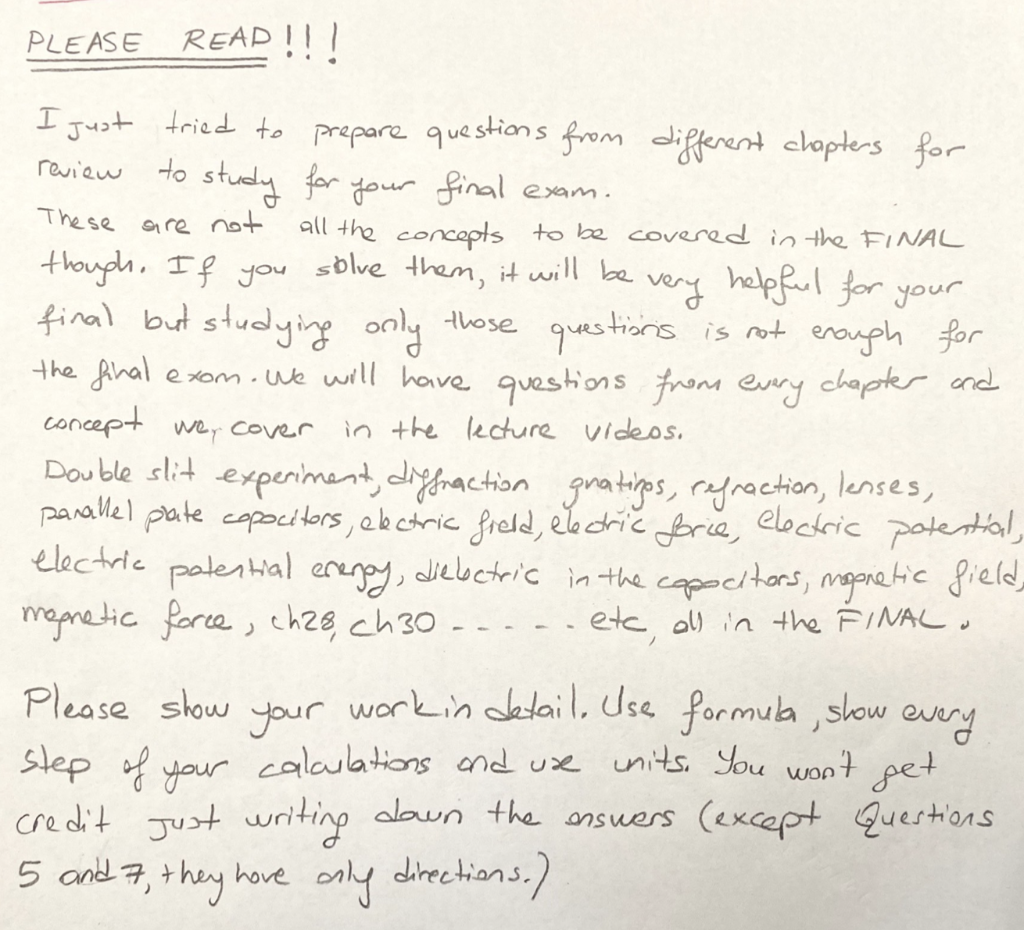 PLEASE READ!!!
I just tried to prepare questions from different chapters for
review to study for your final exam.
These are not all the concepts to be covered in the FINAL
though. If you solve them, it will be very helpful for your
final but studying only those questions is not enough for
the final exam. We will have questions from every chapter and
concept we, cover in the lecture videos.
Double slit experiment, diffraction gratings, refraction, lenses,
parallel plate capacitors, electric field, electric force, electric potential,
electric potential energy, dielectric in the capacitors, magnetic field,
magnetic force, ch28, ch30 ----- etc, all in the FINAL.
Please show your work in detail. Use formula, show every
step of your calculations and use units. You won't get
credit just writing down the answers (except Questions
5 and 7, they have only directions.)